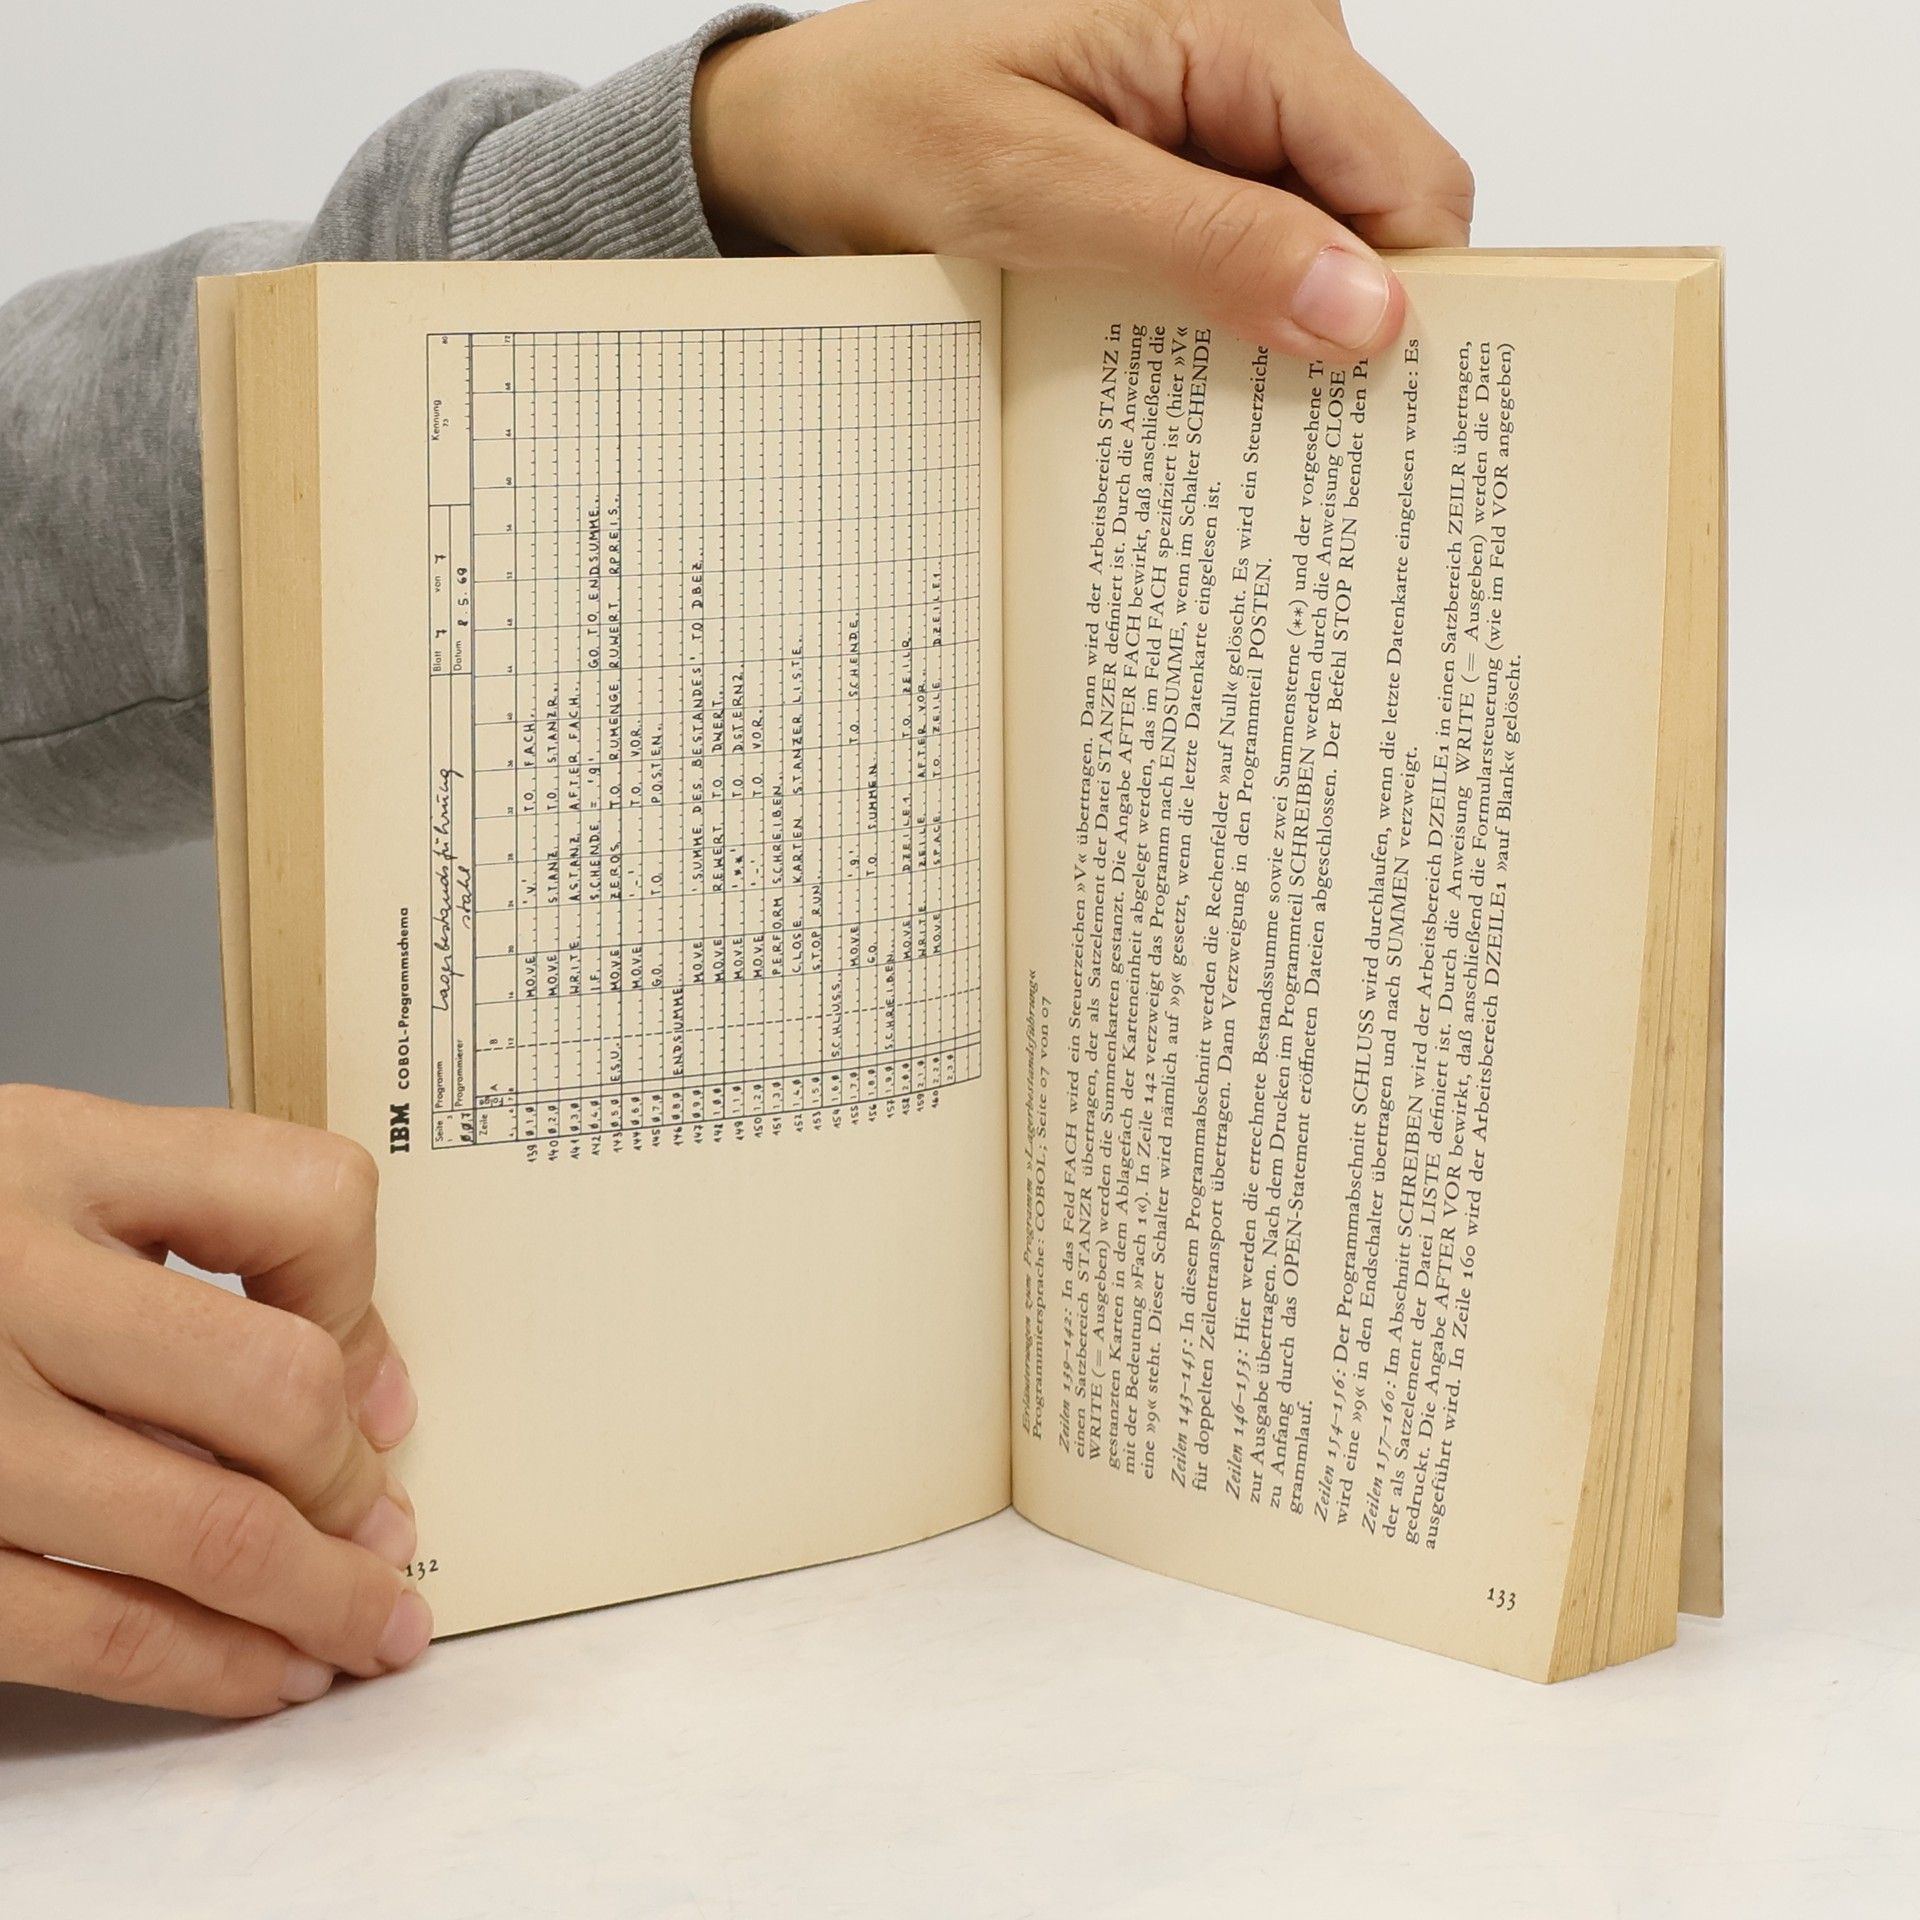 IBM COBOL-Programmschema
Seite Programm Lagerbestandsführung Blatt 7 von 7 Kennung
1 3 73 80
007 Programmierer Stahl Datum 8.5.69
Zeile A B
4 6 7 8 12 16 20 24 28 32 36 40 44 48 52 56 60 64 68 72
139 010 MOVE 'V' TO FACH.
140 020 MOVE STANZ TO STANZR.
141 030 WRITE ASTANZ AFTER FACH.
142 040 IF SCHENDE = '9' GO TO ENDSUMME.
143 050 ESU. MOVE ZEROS TO RUMENGE RUWERT RPREIS.
144 060 MOVE '-' TO VOR.
145 070 GO TO POSTEN.
146 080 ENDSUMME.
147 090 MOVE 'SUMME DES BESTANDES' TO DBEZ.
148 100 MOVE REWERT TO DWERT.
149 110 MOVE '**' TO DSTERN2.
150 120 MOVE '-' TO VOR.
151 130 PERFORM SCHREIBEN.
152 140 CLOSE KARTEN STANZER LISTE.
153 150 STOP RUN.
154 160 SCHLUSS.
155 170 MOVE '9' TO SCHENDE.
156 180 GO TO SUMMEN.
157 190 SCHREIBEN.
158 200 MOVE DZEILE1 TO ZEILR.
159 210 WRITE ZEILE AFTER VOR.
160 220 MOVE SPACE TO ZEILE DZEILE1.
230
132
Erläuterungen zum Programm »Lagerbestandsführung«
Programmiersprache: COBOL; Seite 07 von 07
Zeilen 139–142: In das Feld FACH wird ein Steuerzeichen »V« übertragen. Dann wird der Arbeitsbereich STANZ in
einen Satzbereich STANZR übertragen, der als Satzelement der Datei STANZER definiert ist. Durch die Anweisung
WRITE (= Ausgeben) werden die Summenkarten gestanzt. Die Angabe AFTER FACH bewirkt, daß anschließend die
gestanzten Karten in dem Ablagefach der Karteneinheit abgelegt werden, das im Feld FACH spezifiziert ist (hier »V«
mit der Bedeutung »Fach 1«). In Zeile 142 verzweigt das Programm nach ENDSUMME, wenn im Schalter SCHENDE
eine »9« steht. Dieser Schalter wird nämlich auf »9« gesetzt, wenn die letzte Datenkarte eingelesen ist.
Zeilen 143–145: In diesem Programmabschnitt werden die Rechenfelder »auf Null« gelöscht. Es wird ein Steuerzeiche
für doppelten Zeilentransport übertragen. Dann Verzweigung in den Programmteil POSTEN.
Zeilen 146–153: Hier werden die errechnete Bestandssumme sowie zwei Summensterne (**) und der vorgesehene
zur Ausgabe übertragen. Nach dem Drucken im Programmteil SCHREIBEN werden durch die Anweisung CLOSE
zu Anfang durch das OPEN-Statement eröffneten Dateien abgeschlossen. Der Befehl STOP RUN beendet den
grammlauf.
Zeilen 154–156: Der Programmabschnitt SCHLUSS wird durchlaufen, wenn die letzte Datenkarte eingelesen wurde: Es
wird eine »9« in den Endschalter übertragen und nach SUMMEN verzweigt.
Zeilen 157–160: Im Abschnitt SCHREIBEN wird der Arbeitsbereich DZEILE1 in einen Satzbereich ZEILR übertragen,
der als Satzelement der Datei LISTE definiert ist. Durch die Anweisung WRITE (= Ausgeben) werden die Daten
gedruckt. Die Angabe AFTER VOR bewirkt, daß anschließend die Formularsteuerung (wie im Feld VOR angegeben)
ausgeführt wird. In Zeile 160 wird der Arbeitsbereich DZEILE1 »auf Blank« gelöscht.
133